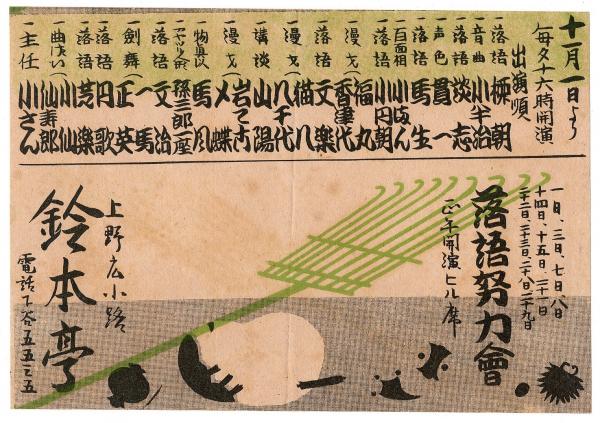 十一月一日より
毎夕十六時開演
出演順
一落語 柳朝
一音曲 小半治
一落語 談志
一声色 貫一
一落語 馬生
一百面相 小満ん
一落語 小円朝
一落語 福丸
一漫才 香津代
一落語 文楽
一漫才 猫八
一漫才 八千代
一講談 山陽
一漫才
一落語 馬風
一落語 文治
一剣舞 正英
一落語 円歌
一落語 荒楽
一曲ばい 小仙
一主任 小さん
一日、三日、七日、八日
十四日、十五日、二十一日
二十二日、二十三日、二十八日、二十九日
落語努力會
正午開演ヒル席
上野広小路
鈴本亭
電話下谷五五三五